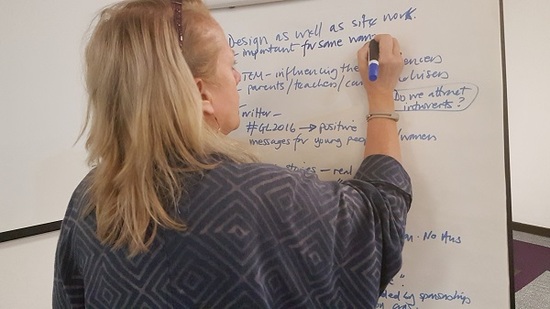 Design as well as site work.
- important for some wom
TEM - influencing the encers
parents/teacher/ca advisers
Do we attract
introverts?
witter -
#GL2016 → positive
messages for young peop /women
stories - real
No
ded by sponsorship